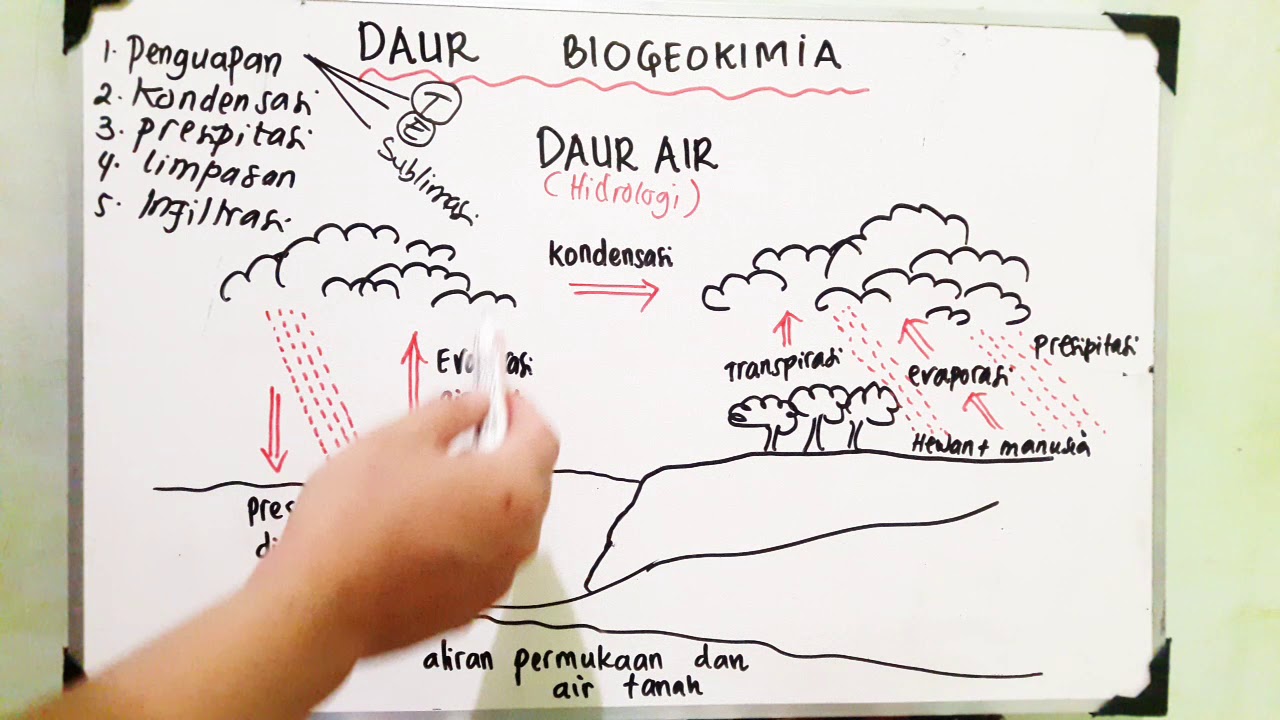 DAUR BIOGEOKIMIA
1. Penguapan
2. Kondensasi
3. Presipitasi
4. limpasan
5. Infiltrasi
T
E
Sublimasi
DAUR AIR
(Hidrologi)
Kondensasi
Transpirasi
evaporasi
Presipitasi
Hewan + manusia
aliran permukaan dan
air tanah